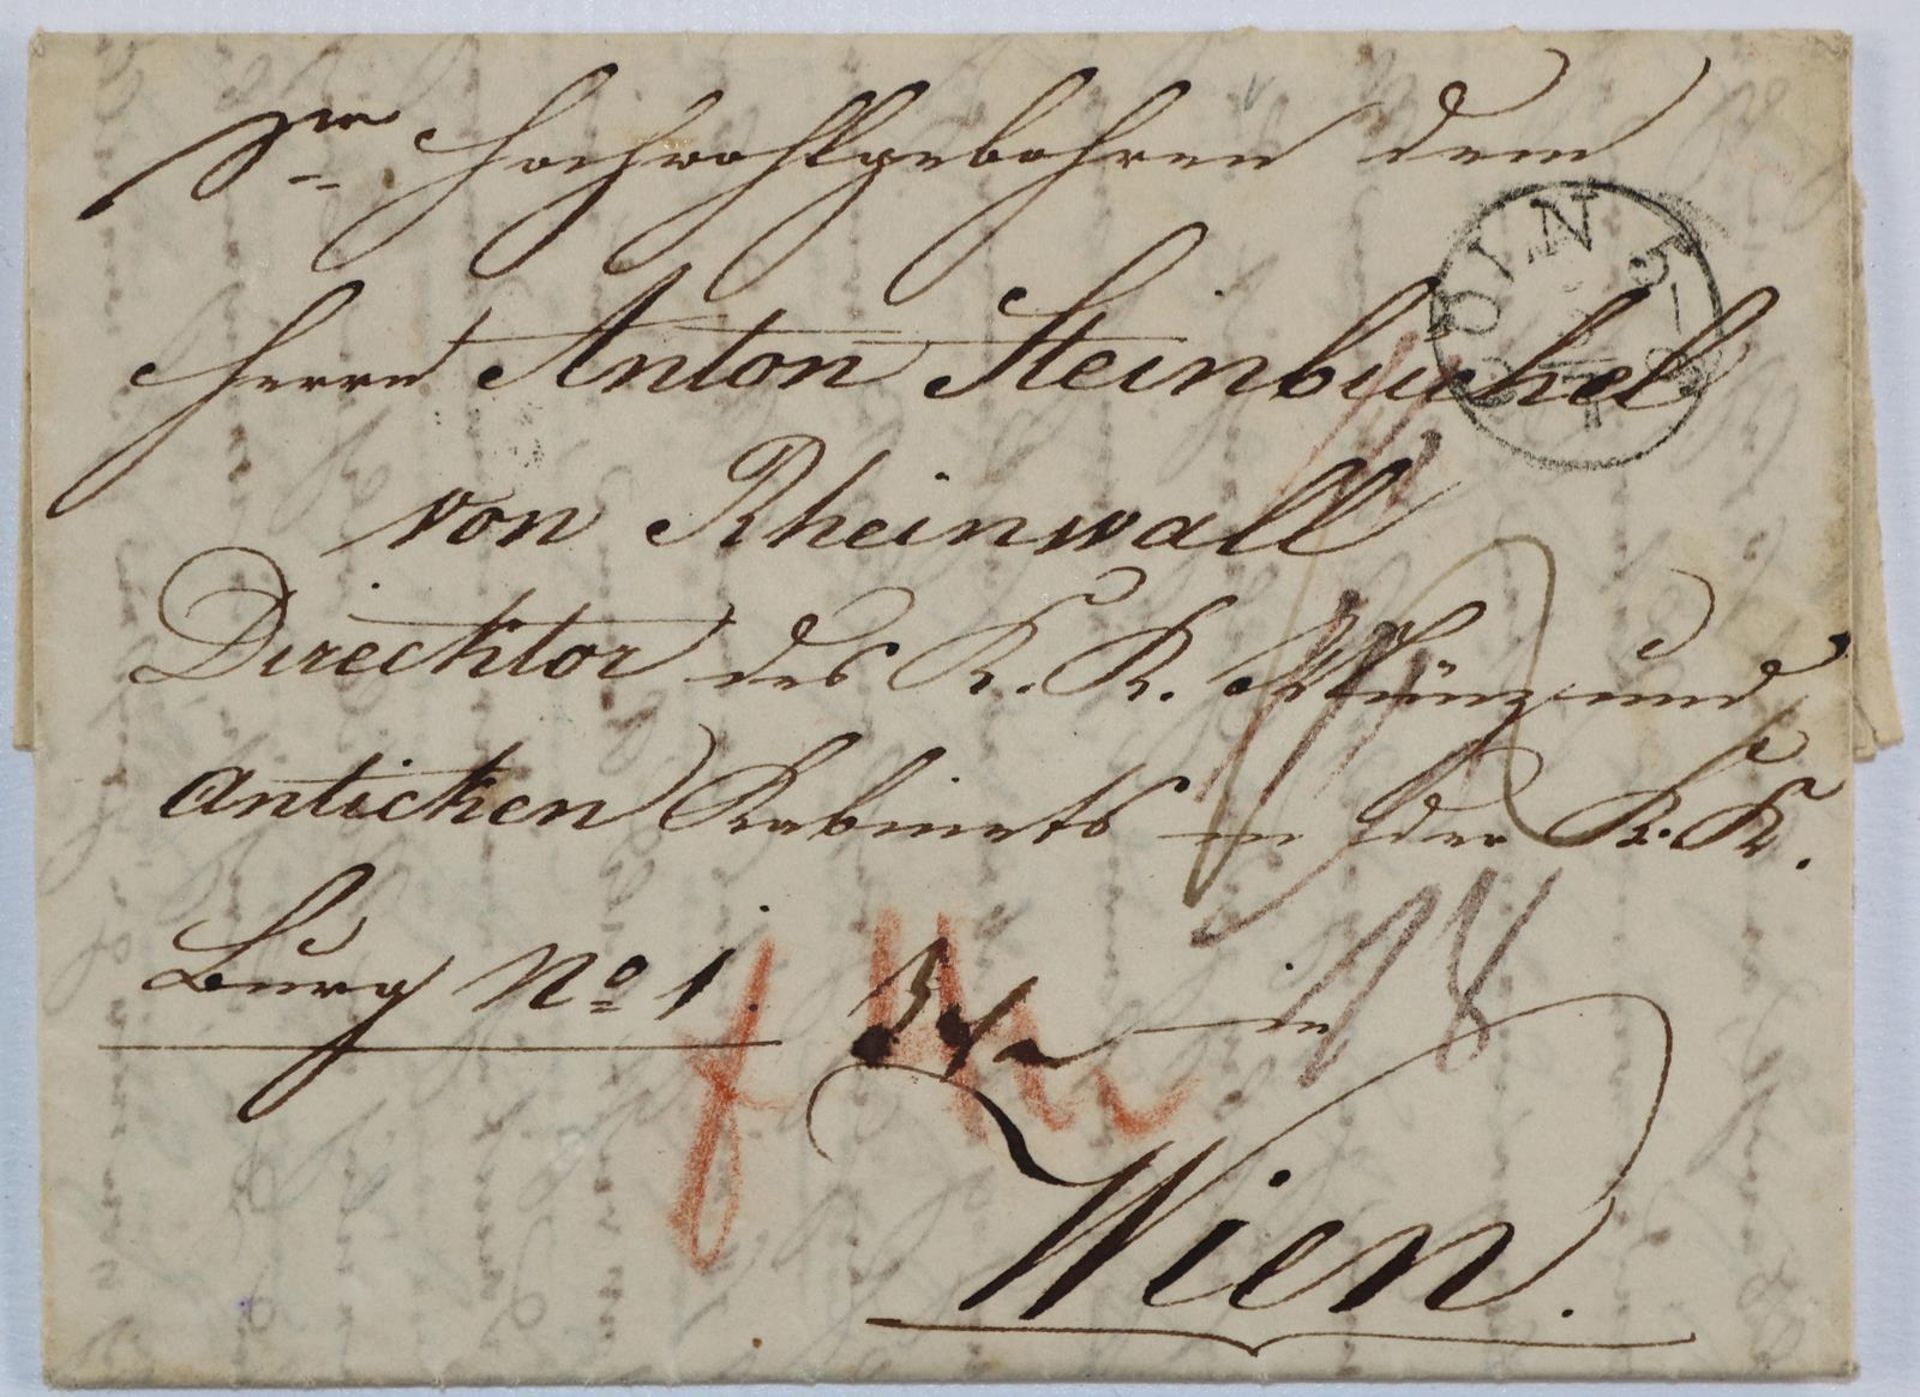 Sr Hochwohlgebohren dem
Herrn Anton Steinbüchel
von Rheinwall
Direcktor des K. K. Münz und
Anticken Kabinets in der K. K.
Burg No 1.
in
18
Wien.